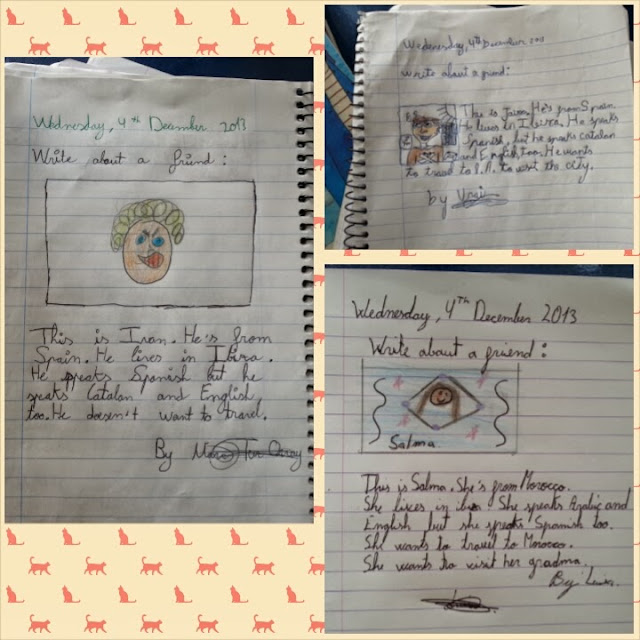 Wednesday, 4th December 2013
Write about a friend:
This is Ivan. He's from
Spain. He lives in Ibiza.
He speaks Spanish but he
speaks Catalan and English
too. He doesn't want to travel.
By
Wednesday, 4th December 2013
Write about a friend:
This is Jaime. He's from Spain.
He lives in Ibiza. He speaks
Spanish, but he speaks catalan
and English too. He wants
to travel to L.A. to visit the city.
by
Wednesday, 4th December 2013
Write about a friend:
Salma
This is Salma. She's from Morocco.
She lives in ibiza She speaks Arabic and
English but she speaks Spanish too.
She wants to travel to Morocco.
She wants to visit her gradma.
By Luis